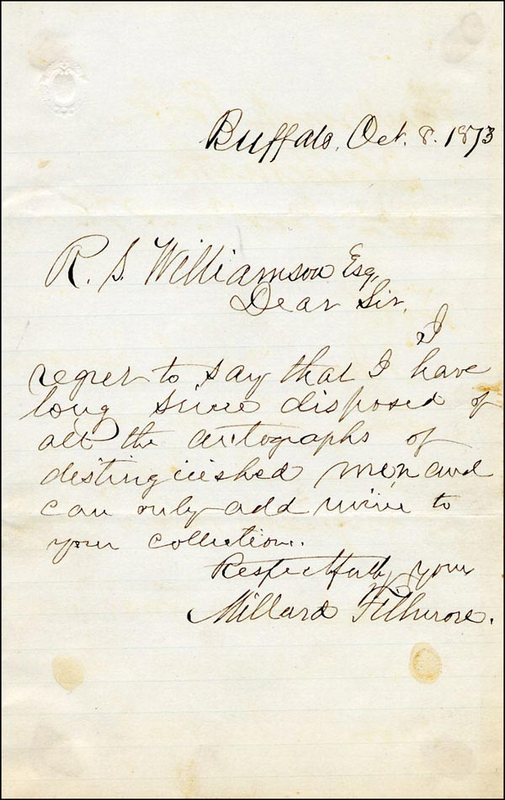 Buffalo, Oct. 8. 1873
R. S. Williamson Esq,
Dear Sir,
I
regret to say that I have
long since disposed of
all the autographs of
distinguished men and
can only add mine to
your collection.
Respectfully yours
Millard Fillmore.